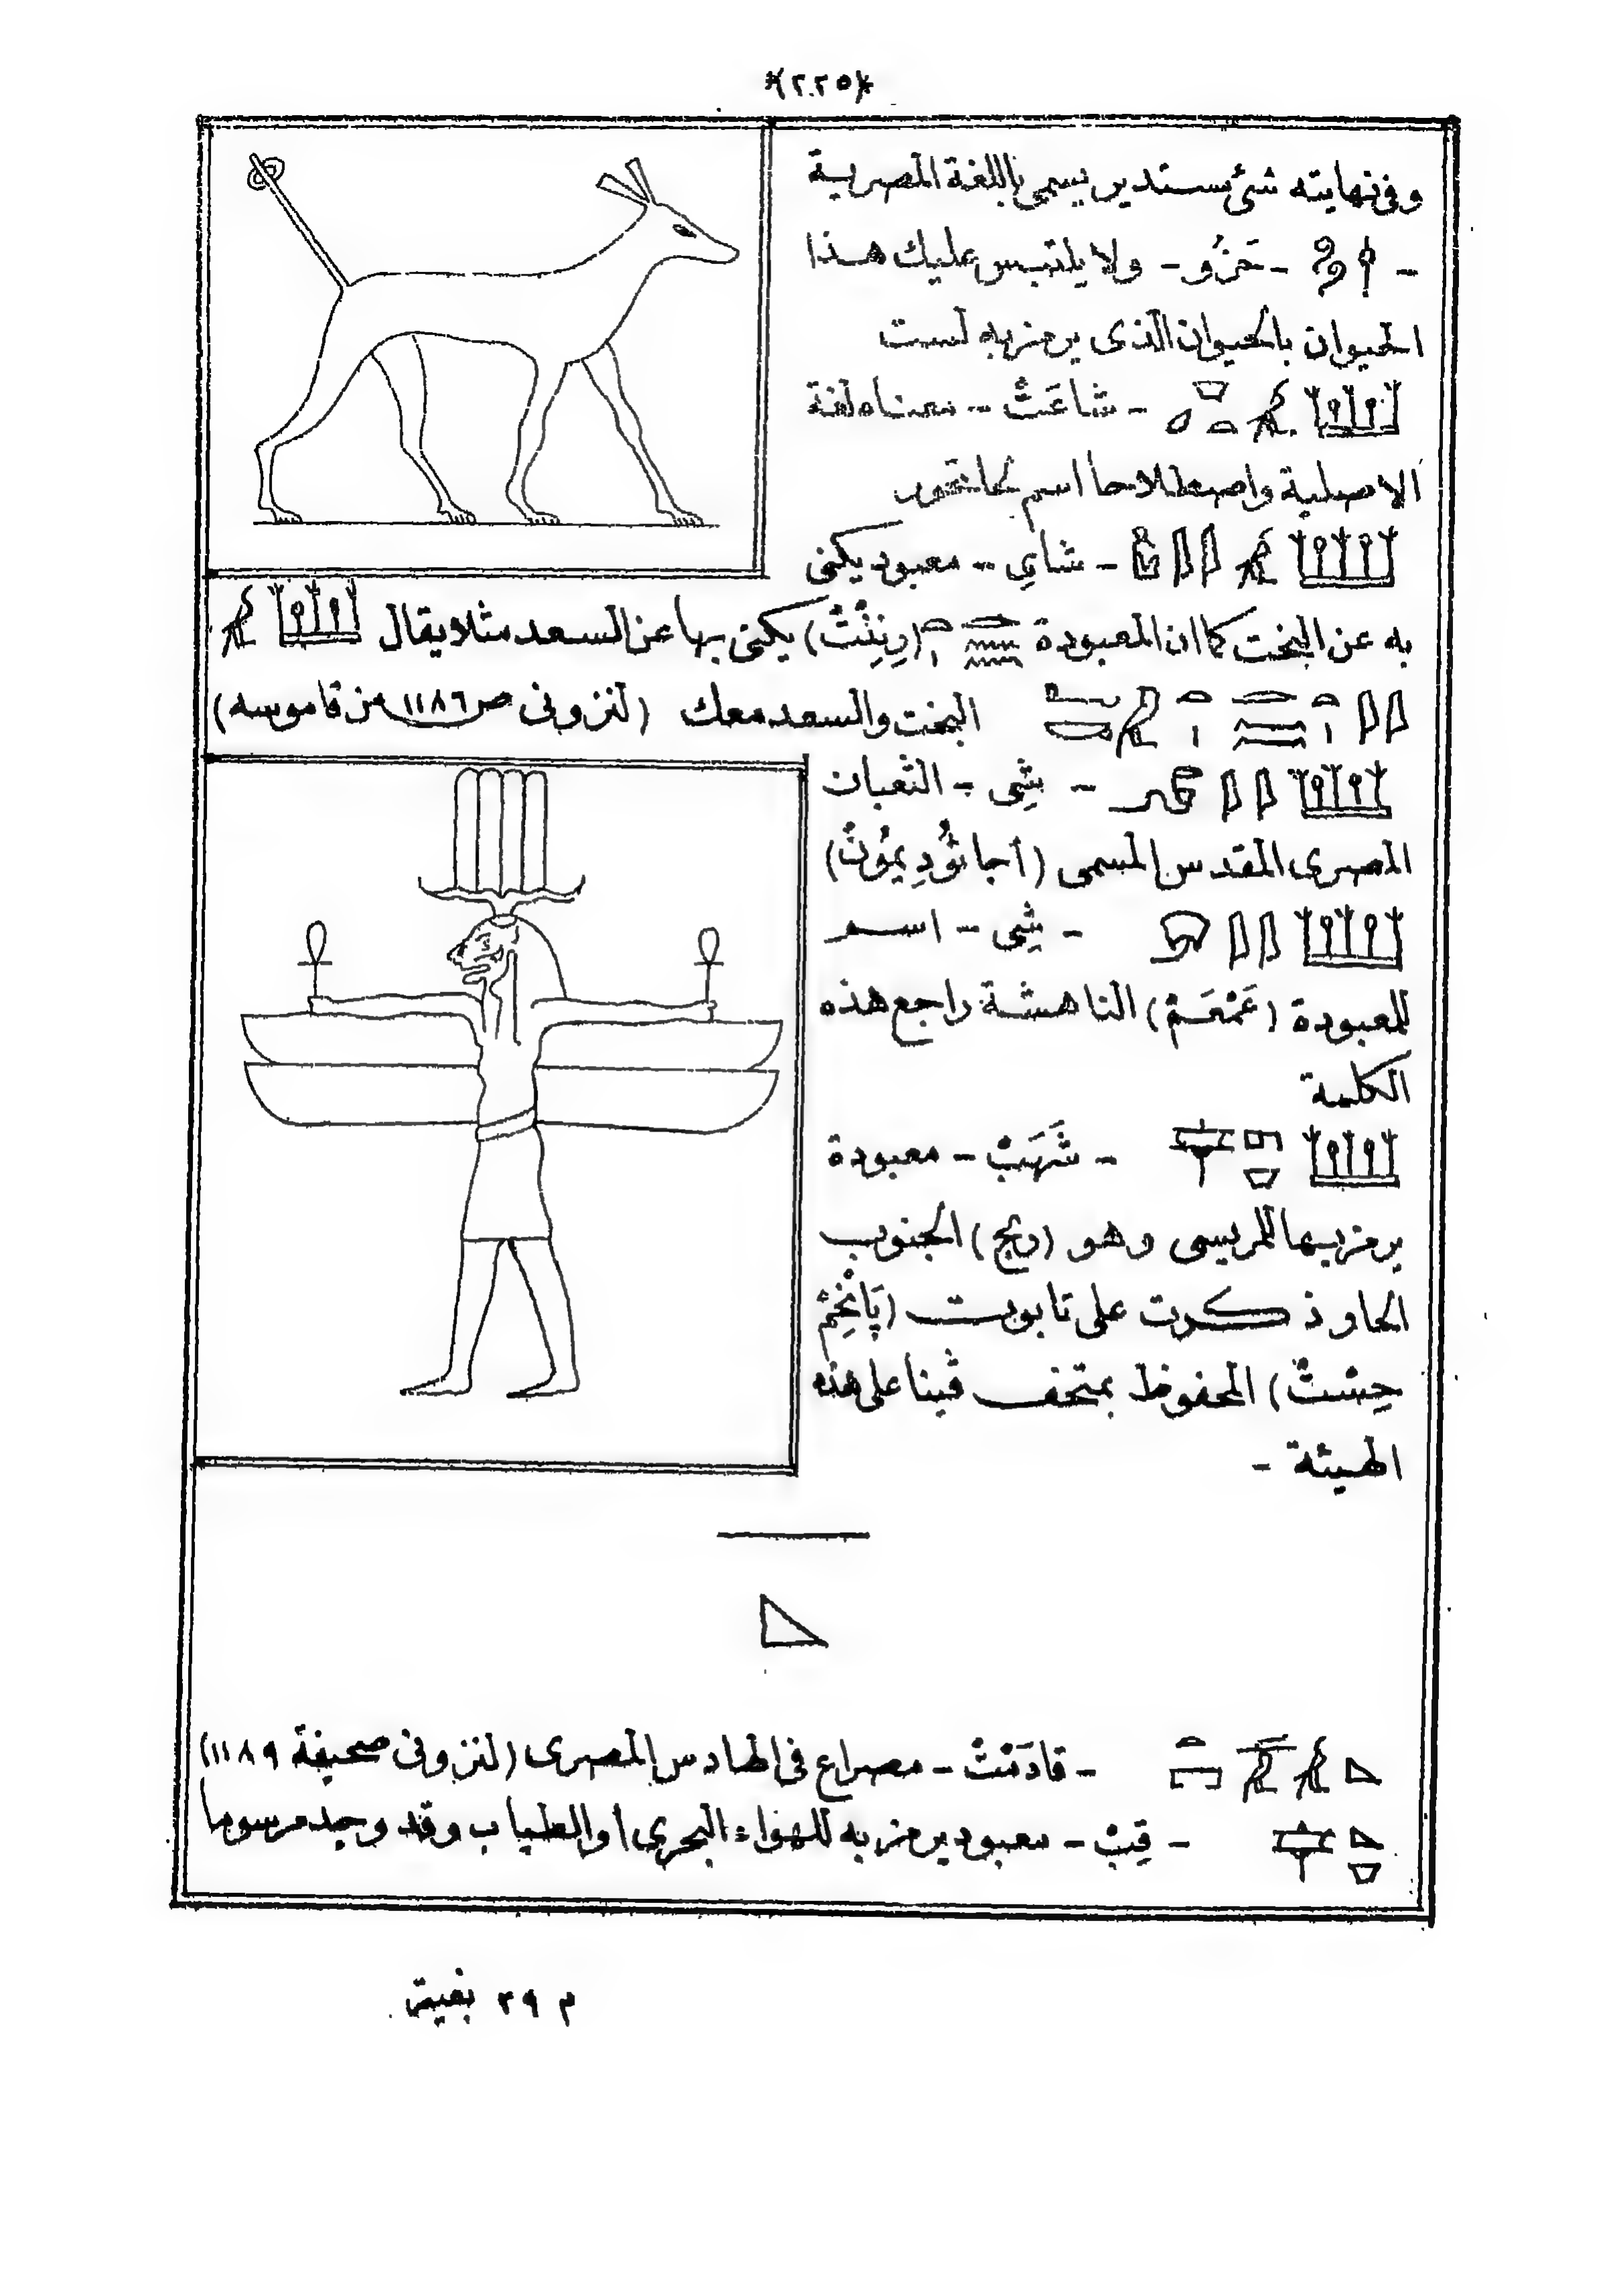 (٢٢٥)
وفى نهايته شئ مستدير يسمى باللغة المصرية
- - ولا يلتبس عليك هذا
الحيوان بالحيوان الذى يرمز به لست
- شاعَتْ - معناه لغة
الاصلية واصطلاحا اسم
- شاىِ - معبود يكنى
به عن البخت كما ان المعبودة (رِنِنْتْ) يكنى بها عن السعد مثلا يقال
البخت والسعد معك (لنزونى ص ١١٨٦ من قاموسه)
- شِى - الثعبان
المصرى المقدس المسمى (أجاثُودِيمُونْ)
- شِى - اسم
للمعبودة (عَمْعَمْ) الناهشة راجع هذه
الكلمة
- شَهَبْ - معبودة
يرمز بها للمريسى وهو (ريح) الجنوب
الحار وذكرت على تابوت (پَانْحِمْ
حِسْتْ) المحفوظ بمتحف ڤينا على هذه
الهيئة -
- قادَمْتْ - مصراع فى الهادس المصرى (لنزونى صحيفة ١١٨٩)
- قِبْ - معبود يرمز به للهواء البحرى أو الطياب وقد وجد مرسوما
م ٢٩ بغية